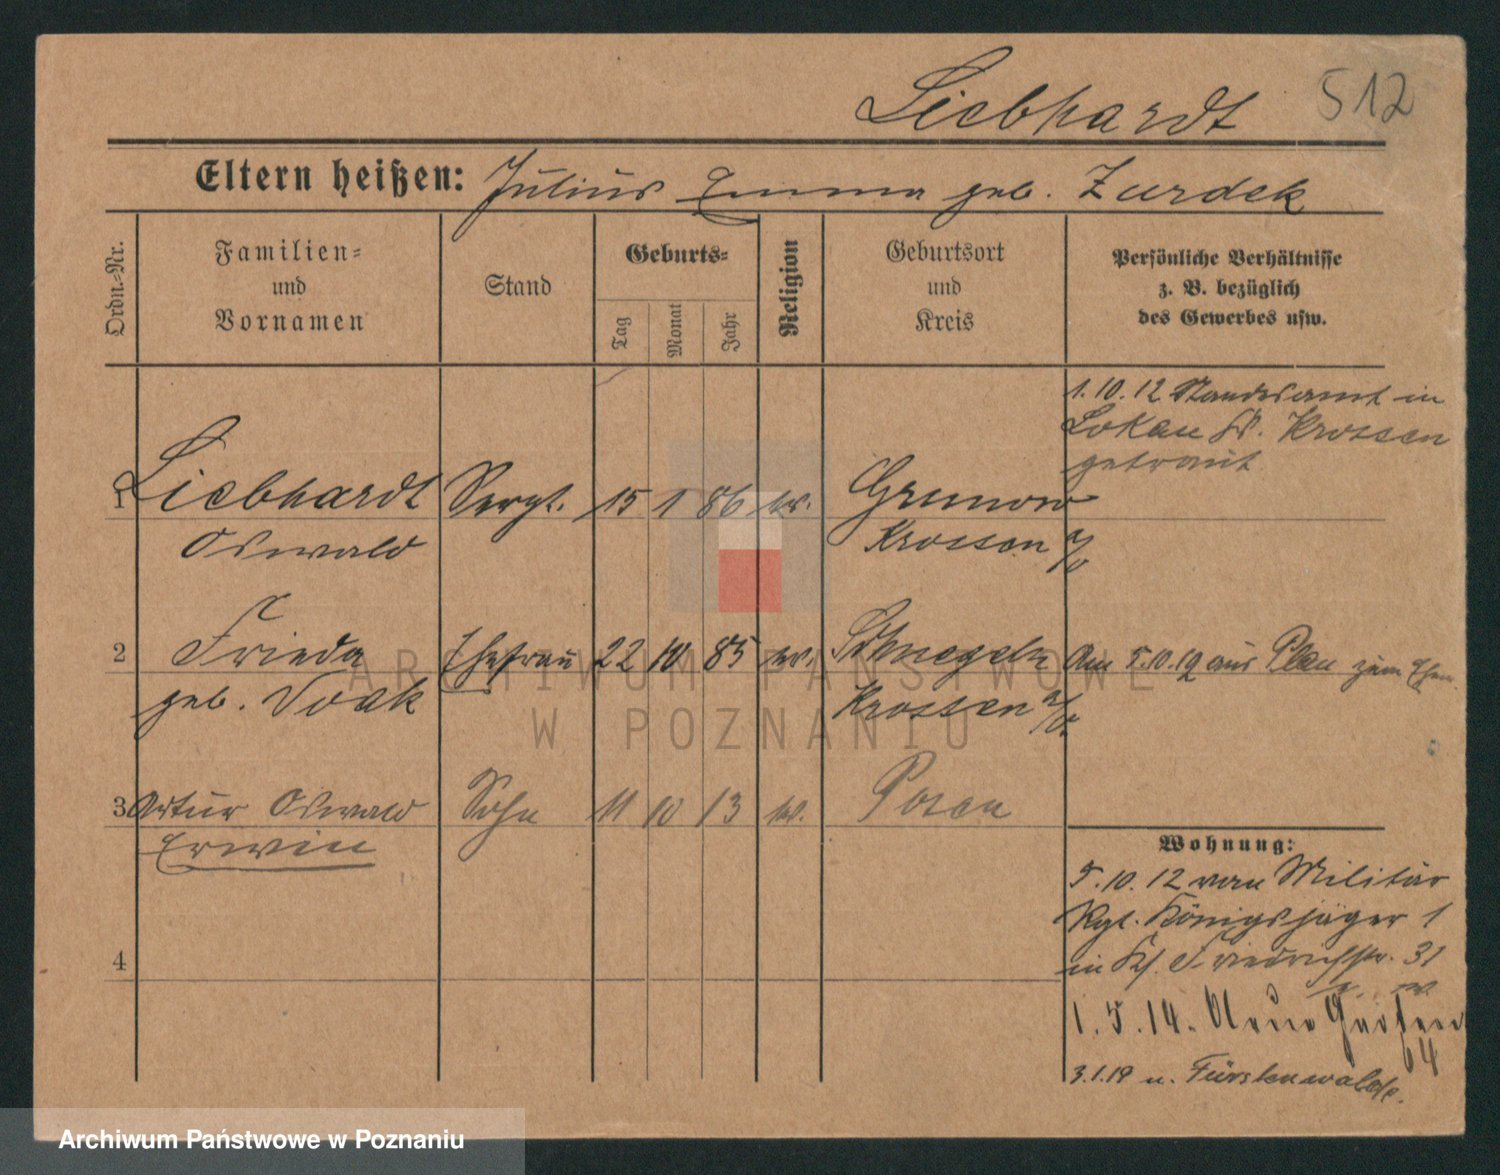 Liebhardt 512
Eltern heißen: Julius Emma geb. Zurdek
Ordn.-Nr.
Familien-
und
Vornamen
Stand
Geburts-
Tag
Monat
Jahr
Religion
Geburtsort
und
Kreis
Persönliche Verhältnisse
z. B. bezüglich
des Gewerbes usw.
1. 10. 12 Standesamt in
Krossen
getraut
1 Liebhardt Sergt. 15 1 86 ev. Grunow
Oswald Krossen a/O
2 Frieda Ehefrau 22 10 85 ev. Am 5.10.12 aus zum
geb. Noack Krossen a/O.
3 Artur Oswald Sohn 11 10 13 ev. Posen
Erwin
4
Wohnung:
5. 10. 12 von Militär
Rgt. Königsjäger 1
in Friedrichstr. 31
1. 5. 14. Neue
64
3.1.19 n. Fürstenwalde.
ARCHIWUM PAŃSTWOWE
W POZNANIU
Archiwum Państwowe w Poznaniu